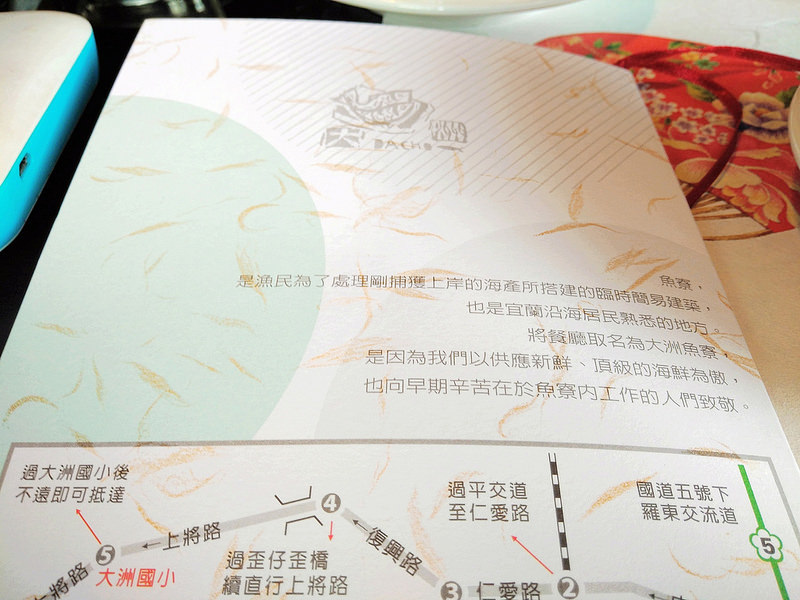 大洲
DACHO
魚寮，
是漁民為了處理剛捕獲上岸的海產所搭建的臨時簡易建築，
也是宜蘭沿海居民熟悉的地方。
將餐廳取名為大洲魚寮，
是因為我們以供應新鮮、頂級的海鮮為傲，
也向早期辛苦在於魚寮內工作的人們致敬。
過大洲國小後
不遠即可抵達
上將路
4
過平交道
至仁愛路
國道五號下
羅東交流道
5
5
大洲國小
上將路
過歪仔歪橋
續直行上將路
復興路
3
仁愛路
2